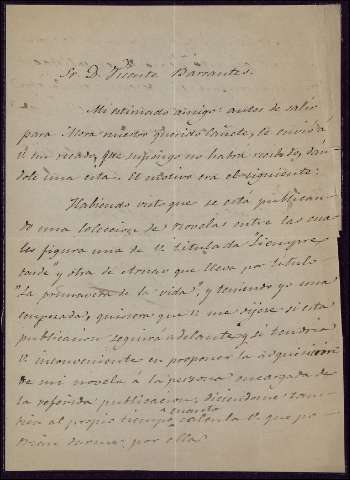 Sr. D. Vicente Barrantes.
Mi estimado amigo: antes de salir
para Mora nuestro querido Cañete, le envió á
V. un recado, que supongo no habrá recibido, dán-
dole una cita. El motivo era el siguiente:
Habiendo visto que se está publican-
do una coleccion de novelas entre las cua-
les figura una de V. titulada "Siempre
tarde" y otra de Arnao que lleva por título
"La primavera de la vida", y teniendo yo una
empezada, quisiera que V. me dijese si esta
publicacion seguirá adelante y si tendria
V. inconveniente en proponer la adquisicion
de mi novela á la persona encargada de
la referida publicacion, diciéndome tam-
bien al propio tiempo cuanto calcula V. que po-
drán darme por ella